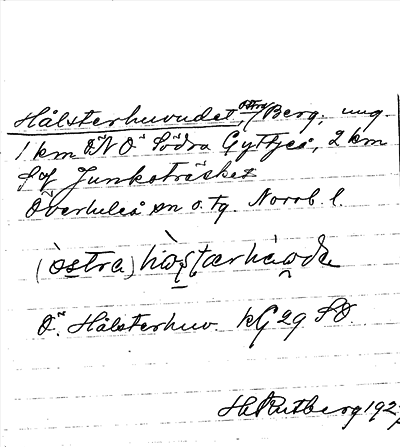 Hålsterhuvudet, östra/Berg, ung.
1 km ÖNÖ Södra Gyttjeå, 2 km
S of Junkoträsket
Överluleå sn o. tg. Norrb. l.
(östra)
Ö. Hålsterhuv kG 29 SO
H. Rutberg 192